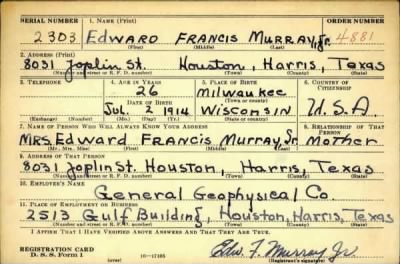 SERIAL NUMBER 1. NAME (Print) ORDER NUMBER
2303 EDWARD FRANCIS MURRAY, Jr. 4881
(First) (Middle) (Last)
2. ADDRESS (Print)
8031 Joplin St. Houston, Harris, Texas
(Number and street or R. F. D. number) (Town) (County) (State)
3. TELEPHONE 4. AGE IN YEARS 5. PLACE OF BIRTH 6. COUNTRY OF CITIZENSHIP
26 Milwaukee
DATE OF BIRTH (Town or county)
Jul. 2 1914 Wisconsin U.S.A.
(Exchange) (Number) (Mo.) (Day) (Yr.) (State or country)
7. NAME OF PERSON WHO WILL ALWAYS KNOW YOUR ADDRESS 8. RELATIONSHIP OF THAT PERSON
MRS. Edward Francis Murray, Sr. Mother
(Mr., Mrs., Miss) (First) (Middle) (Last)
9. ADDRESS OF THAT PERSON
8031 Joplin St. Houston, Harris, Texas
(Number and street or R. F. D. number) (Town) (County) (State)
10. EMPLOYER'S NAME
General Geophysical Co.
11. PLACE OF EMPLOYMENT OR BUSINESS
2513 Gulf Building, Houston, Harris, Texas
(Number and street or R. F. D. number) (Town) (County) (State)
I AFFIRM THAT I HAVE VERIFIED ABOVE ANSWERS AND THAT THEY ARE TRUE.
REGISTRATION CARD
D. S. S. Form 1 (over) 16—17105 Edw. F. Murray Jr